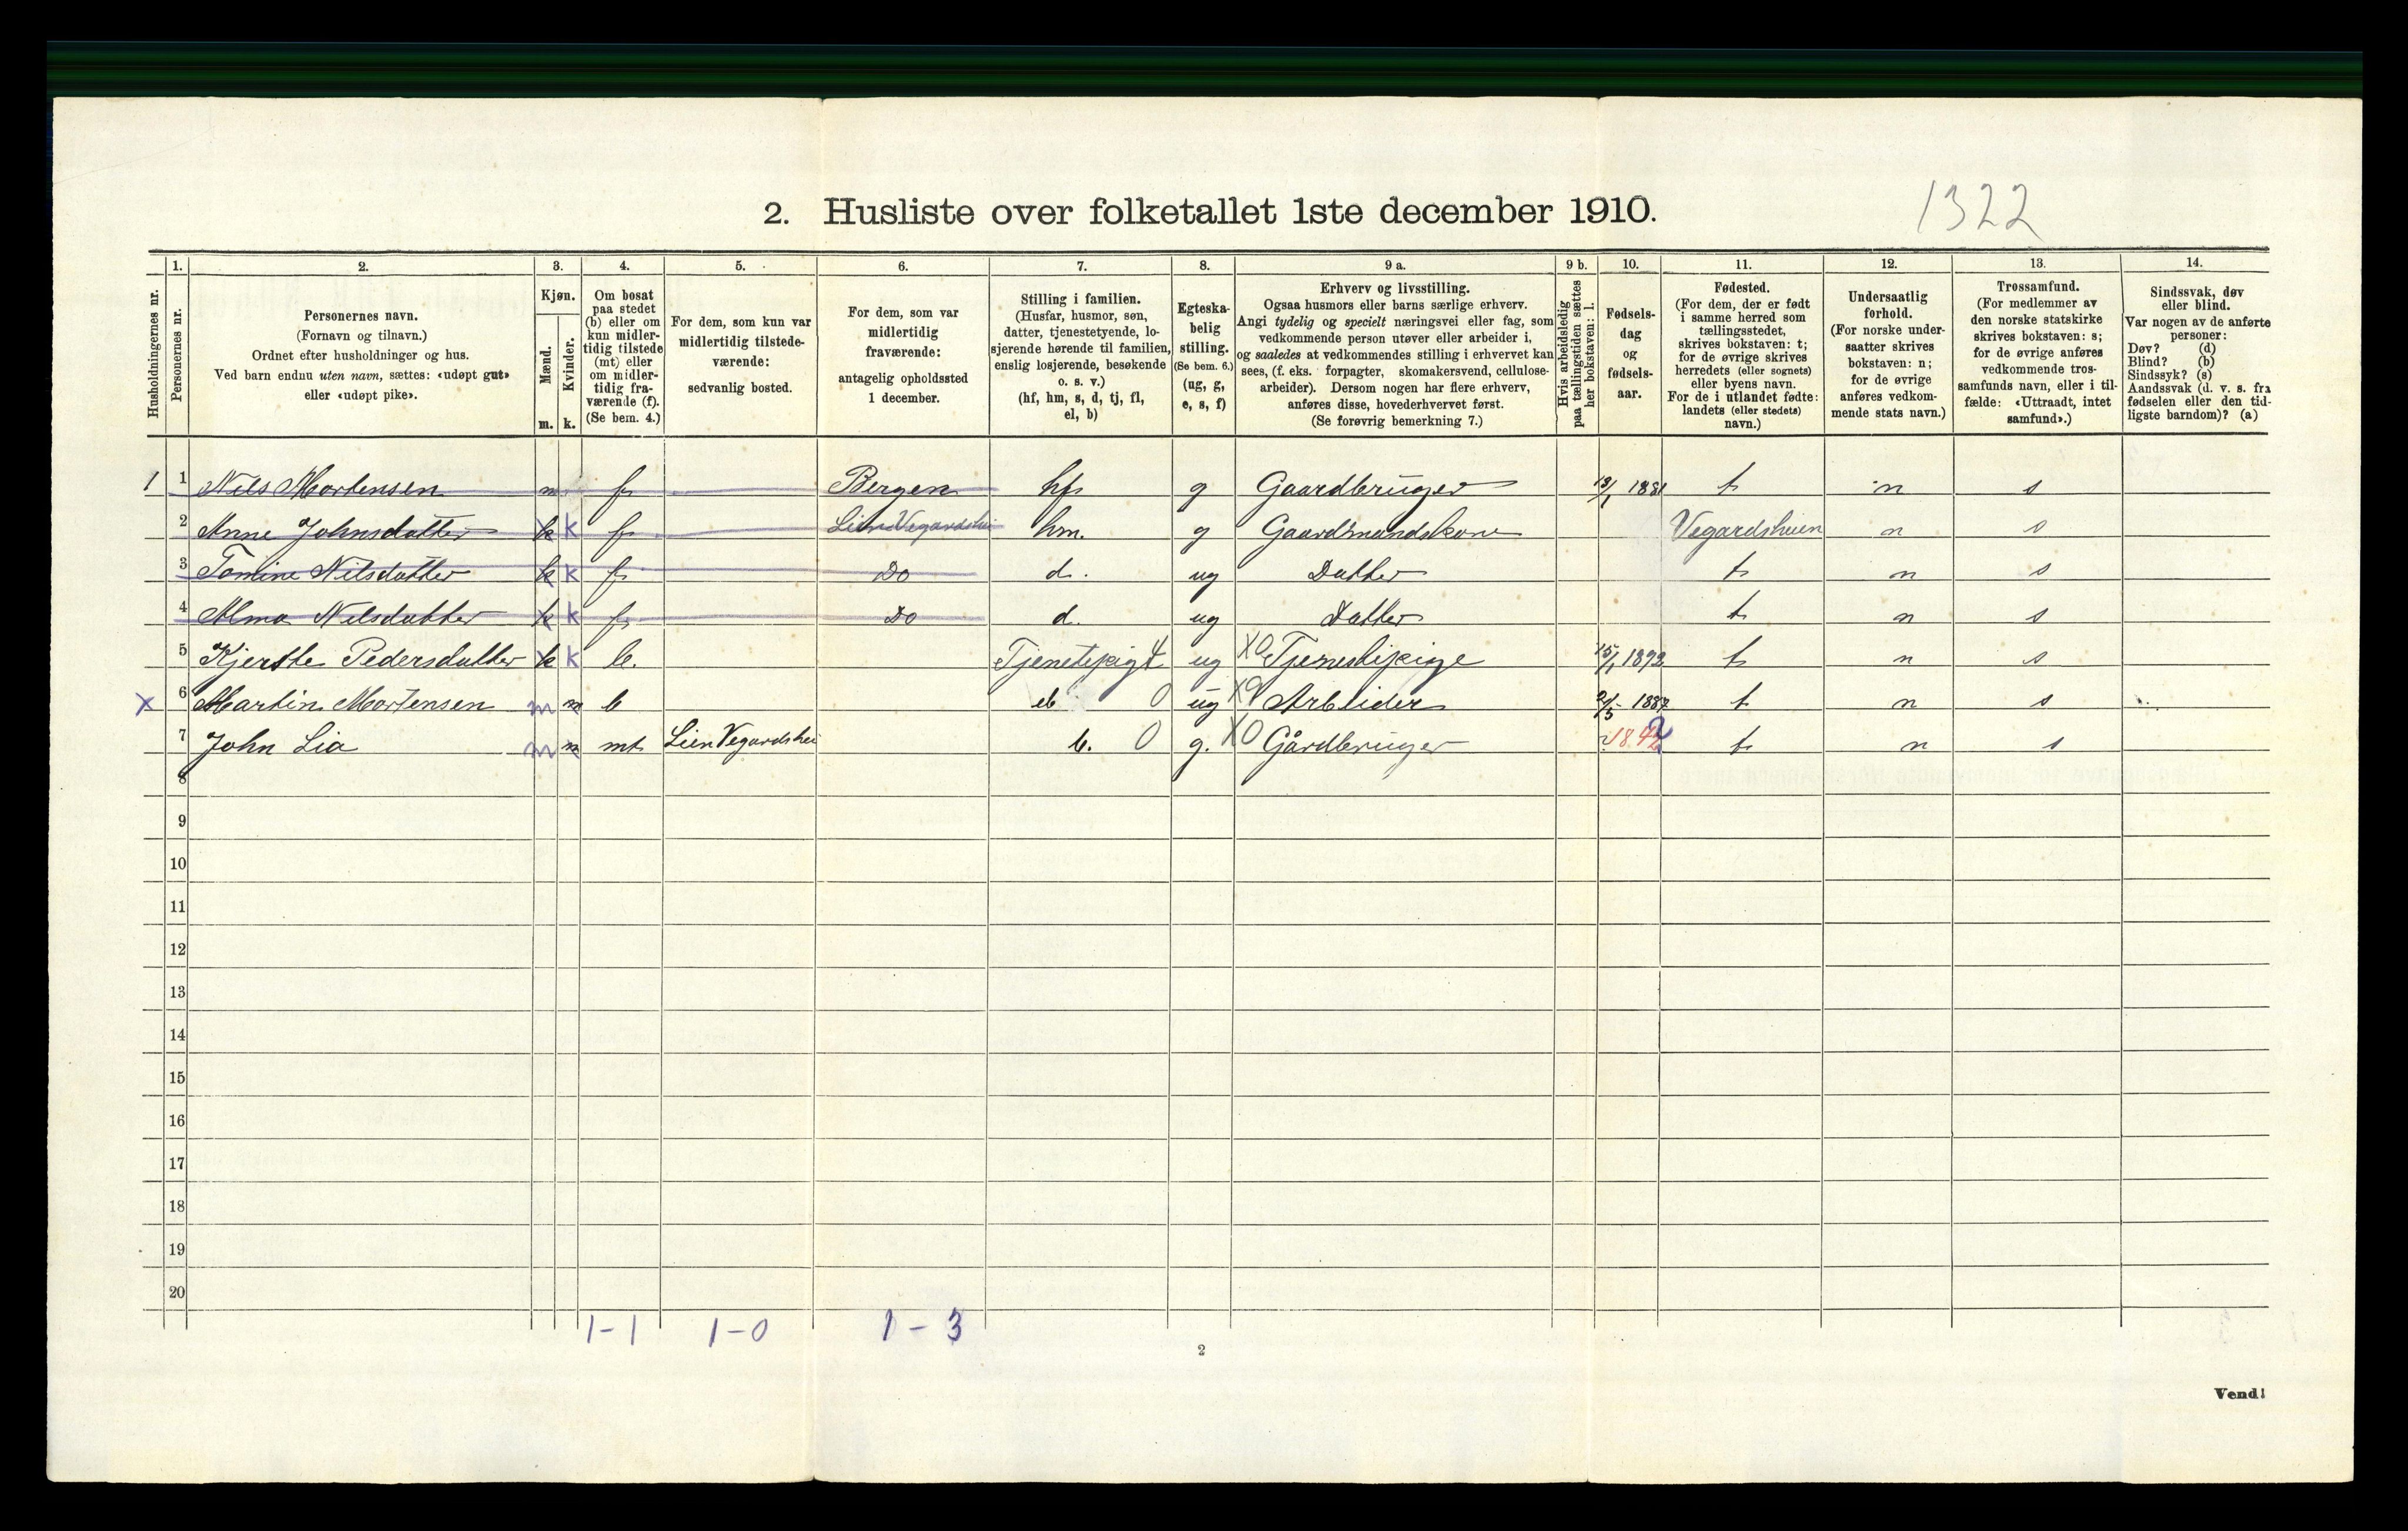 1322
2. Husliste over folketallet 1ste december 1910.
Husholdningernes nr.
1. Personernes nr.
2. Personernes navn. (Fornavn og tilnavn.) Ordnet efter husholdninger og hus. Ved barn endnu uten navn, sættes: «udøpt gut» eller «udøpt pike».
3. Kjøn. Mænd. m. Kvinder. k.
4. Om bosat paa stedet (b) eller om kun midlertidig tilstede (mt) eller om midlertidig fraværende (f). (Se bem. 4.)
5. For dem, som kun var midlertidig tilstedeværende: sedvanlig bosted.
6. For dem, som var midlertidig fraværende: antagelig opholdssted 1 december.
7. Stilling i familien. (Husfar, husmor, søn, datter, tjenestetyende, losjerende hørende til familien, enslig losjerende, besøkende o. s. v.) (hf, hm, s, d, tj, fl, el, b)
8. Egteskabelig stilling. (Se bem. 6.) (ug, g, e, s, f)
9 a. Erhverv og livsstilling. Ogsaa husmors eller barns særlige erhverv. Angi tydelig og specielt næringsvei eller fag, som vedkommende person utøver eller arbeider i, og saaledes at vedkommendes stilling i erhvervet kan sees, (f. eks. forpagter, skomakersvend, cellulosearbeider). Dersom nogen har flere erhverv, anføres disse, hovederhvervet først. (Se forøvrig bemerkning 7.)
9 b. Hvis arbeidsledig paa tællingstiden sættes her bokstaven: l.
10. Fødselsdag og fødselsaar.
11. Fødested. (For dem, der er født i samme herred som tællingsstedet, skrives bokstaven: t; for de øvrige skrives herredets (eller sognets) eller byens navn. For de i utlandet fødte: landets (eller stedets) navn.)
12. Undersaatlig forhold. (For norske undersaatter skrives bokstaven: n; for de øvrige anføres vedkommende stats navn.)
13. Trossamfund. (For medlemmer av den norske statskirke skrives bokstaven: s; for de øvrige anføres vedkommende trossamfunds navn, eller i tilfælde: «Uttraadt, intet samfund».)
14. Sindssvak, døv eller blind. Var nogen av de anførte personer: Døv? (d) Blind? (b) Sindssyk? (s) Aandssvak (d. v. s. fra fødselen eller den tidligste barndom)? (a)
1 1 Nils Mortensen m f Bergen hf g Gaardbruger 13/1 1881 t n s
2 Anne Johnsdatter k k f Lien Vegardshei hm. g Gaardmandskone Vegardsheien n s
3 Tomine Nilsdatter k k f Do d. ug Datter t n s
4 Alma Nilsdatter k k f Do d. ug Datter t n s
5 Kjerste Pedersdatter k k b. Tjenestepige 4 ug X0 Tjenestepige 15/1 1892 t n s
X 6 Martin Mortensen m m b el 0 ug X9 Arbeider 2/5 1887 t n s
7 John Lia m m mt Lien Vegardshei b. 0 g. X0 Gårdbruger 1842 t n s
8
9
10
11
12
13
14
15
16
17
18
19
20
1-1 1-0 1-3
2
Vend!